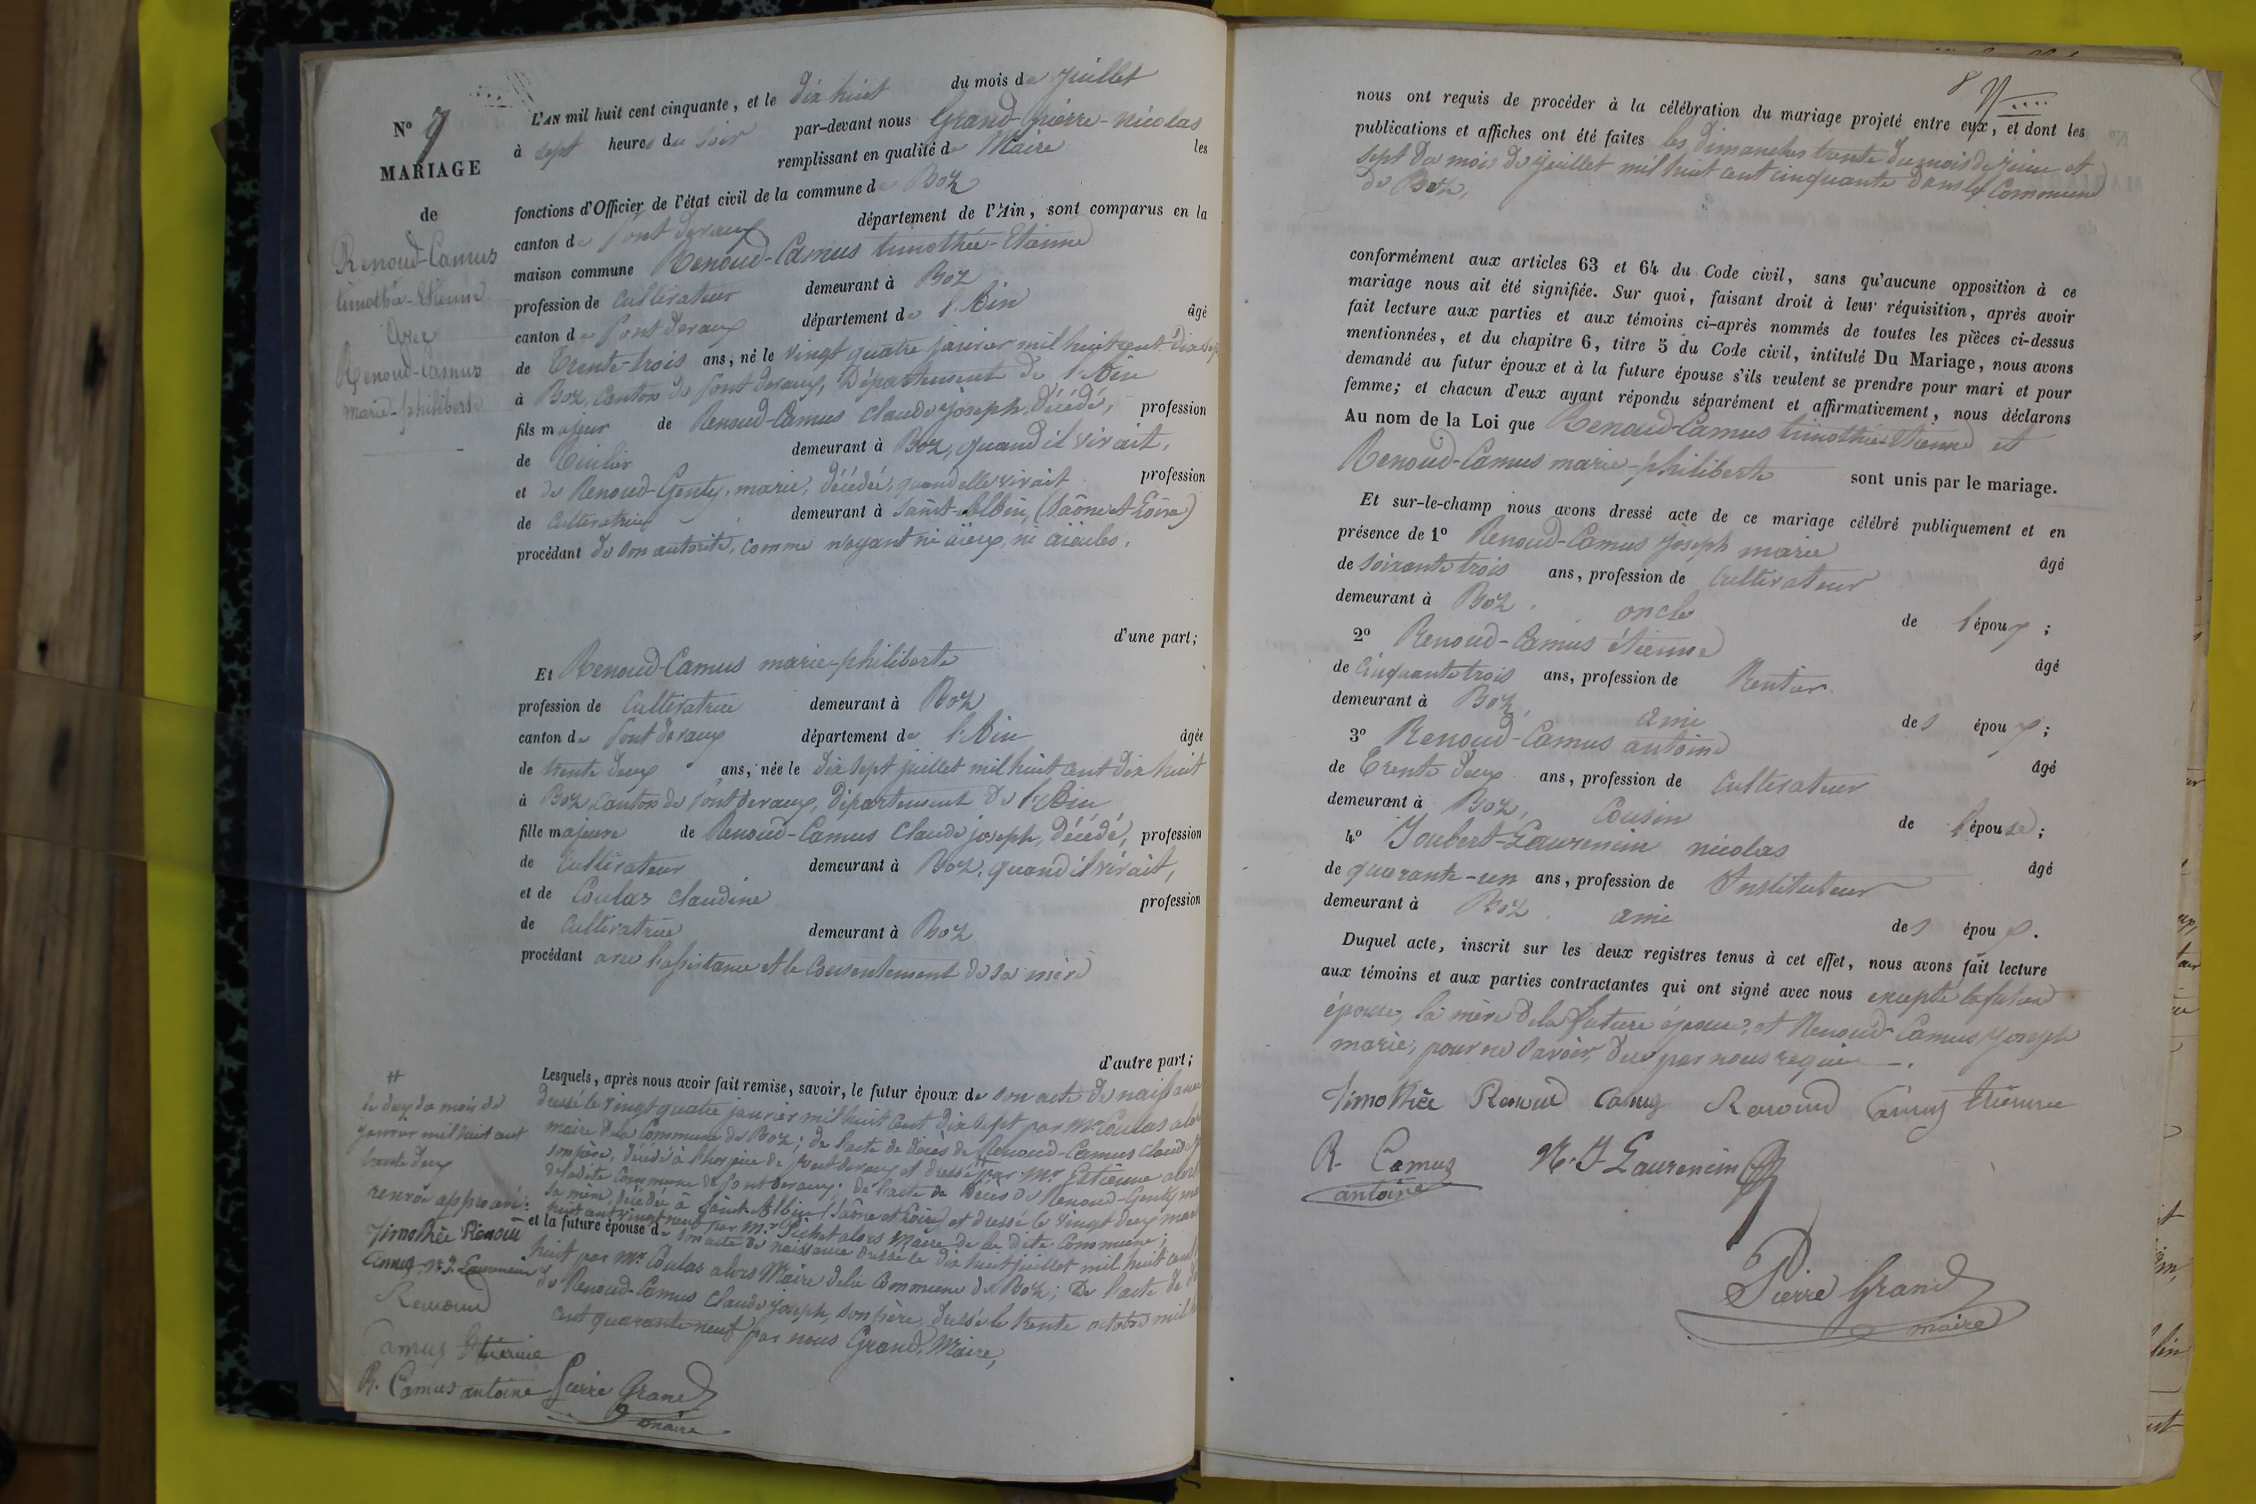 N° 7
MARIAGE
de
Renoud-Camus
timothée-Etienne
Avec
Renoud-Camus
marie-philiberte
L'AN mil huit cent cinquante, et le dix huit du mois de juillet
à sept heures du soir par-devant nous Grand-pierre-nicolas
remplissant en qualité de Maire les
fonctions d'Officier de l'état civil de la commune de Boz
canton de pont devaux département de l'Ain, sont comparus en la
maison commune Renoud-Camus timothée-Etienne
profession de Cultivateur demeurant à Boz
canton de pont devaux département de l'Ain âgé
de Trente-trois ans, né le vingt quatre janvier mil huit cent dix sept
à Boz, Canton de pont devaux, Département de l'Ain
fils majeur de Renoud-Camus Claude joseph, décédé, profession
de demeurant à Boz, quand il vivait,
et de Renoud-Genty, marie, décédée, quand elle vivait profession
de Cultivatrice demeurant à Saint-Albin, (Saône et Loire)
procédant de son autorité, comme n'ayant ni aïeux, ni aïeules.
d'une part;
Et Renoud-Camus marie-philiberte
profession de Cultivatrice demeurant à Boz
canton de pont devaux département de l'Ain âgée
de trente deux ans, née le dix sept juillet mil huit cent dix huit
à Boz canton de pont devaux, département de l'Ain
fille majeure de Renoud-Camus Claude joseph, décédé, profession
de Cultivateur demeurant à Boz, quand il vivait,
et de Coulas claudine profession
de Cultivatrice demeurant à Boz
procédant avec l'assistance et le consentement de sa mère
d'autre part;
Lesquels, après nous avoir fait remise, savoir, le futur époux de son acte de naissance
dressé le vingt quatre janvier mil huit cent dix sept par Mr Coulas alors
maire de la Commune de Boz; de l'acte de décès de Renoud-Camus Claude
son père, décédé à l'hospice de pont devaux et dressé # par Mr Etienne alors
de ladite Commune de pont devaux; de l'acte de décès de Renoud-Genty
sa mère, décédée à Saint-Albin (Saône et Loire) et dressé le vingt deux
huit cent vingt neuf par Mr Pichet alors Maire de la dite Commune;
et la future épouse de son acte de naissance dressé le dix huit juillet mil huit cent
huit par Mr Coulas alors Maire de la Commune de Boz; De l'acte de
de Renoud-Camus Claude joseph, son père, dressé le trente octobre mil
cent quarante neuf par nous Grand, Maire,
#
le deux du mois de
janvier mil huit cent
trente deux
renvoi approuvé:
Timothée Renoud
Camus N. J. Laurencin
Renoud
Camus Etienne
R. Camus antoine Pierre Grand
maire
8
nous ont requis de procéder à la célébration du mariage projeté entre eux, et dont les
publications et affiches ont été faites les dimanches trente du mois de juin et
sept du mois de juillet mil huit cent cinquante dans la Commune
de Boz,
conformément aux articles 63 et 64 du Code civil, sans qu'aucune opposition à ce
mariage nous ait été signifiée. Sur quoi, faisant droit à leur réquisition, après avoir
fait lecture aux parties et aux témoins ci-après nommés de toutes les pièces ci-dessus
mentionnées, et du chapitre 6, titre 5 du Code civil, intitulé Du Mariage, nous avons
demandé au futur époux et à la future épouse s'ils veulent se prendre pour mari et pour
femme; et chacun d'eux ayant répondu séparément et affirmativement, nous déclarons
Au nom de la Loi que Renoud-Camus timothée Etienne et
Renoud-Camus marie-philiberte sont unis par le mariage.
Et sur-le-champ nous avons dressé acte de ce mariage célébré publiquement et en
présence de 1° Renoud-Camus Joseph marie âgé
de soixante trois ans, profession de Cultivateur
demeurant à Boz, oncle de l'époux;
2° Renoud-Camus étienne âgé
de cinquante trois ans, profession de Rentier
demeurant à Boz, ami des époux;
3° Renoud-Camus antoine âgé
de Trente deux ans, profession de Cultivateur
demeurant à Boz, Cousin de l'épouse;
4° Joubert-Laurencin nicolas âgé
de quarante-un ans, profession de Instituteur
demeurant à Boz. ami des époux.
Duquel acte, inscrit sur les deux registres tenus à cet effet, nous avons fait lecture
aux témoins et aux parties contractantes qui ont signé avec nous excepté la future
épouse, la mère de la future épouse, et Renoud-Camus joseph
marie, pour ne savoir de ce par nous requis.
Timothée Renoud Camus Renoud Camus Etienne
R. Camus N. J Laurencin
antoine
Pierre Grand
maire